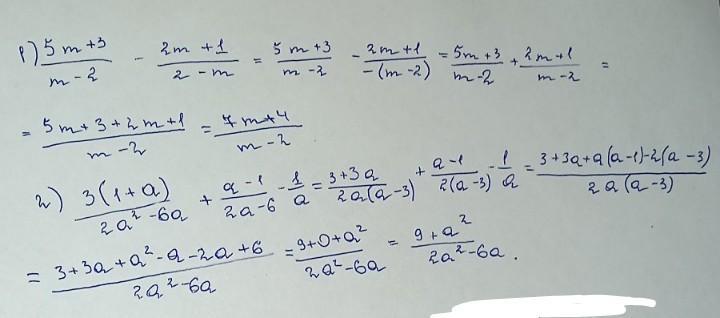 1) (5m+3)/(m-2) - (2m+1)/(2-m) = (5m+3)/(m-2) - (2m+1)/(-(m-2)) = (5m+3)/(m-2) + (2m+1)/(m-2) =
= (5m+3+2m+1)/(m-2) = (7m+4)/(m-2)
2) 3(1+a)/(2a²-6a) + (a-1)/(2a-6) - 1/a = (3+3a)/(2a(a-3)) + (a-1)/(2(a-3)) - 1/a = (3+3a+a(a-1)-2(a-3))/(2a(a-3))
= (3+3a+a²-a-2a+6)/(2a²-6a) = (9+0+a²)/(2a²-6a) = (9+a²)/(2a²-6a).